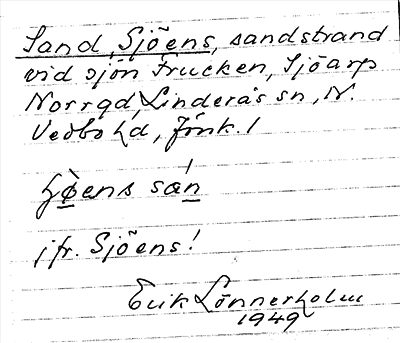 Sand, Sjöens, sandstrand
vid sjön Frucken, Sjöarp
Norrgd, Linderås sn, N.
Vedbo hd, Jönk. l
ʃø̀ens sán
jfr. Sjöens!
Erik Lönnerholm
1949